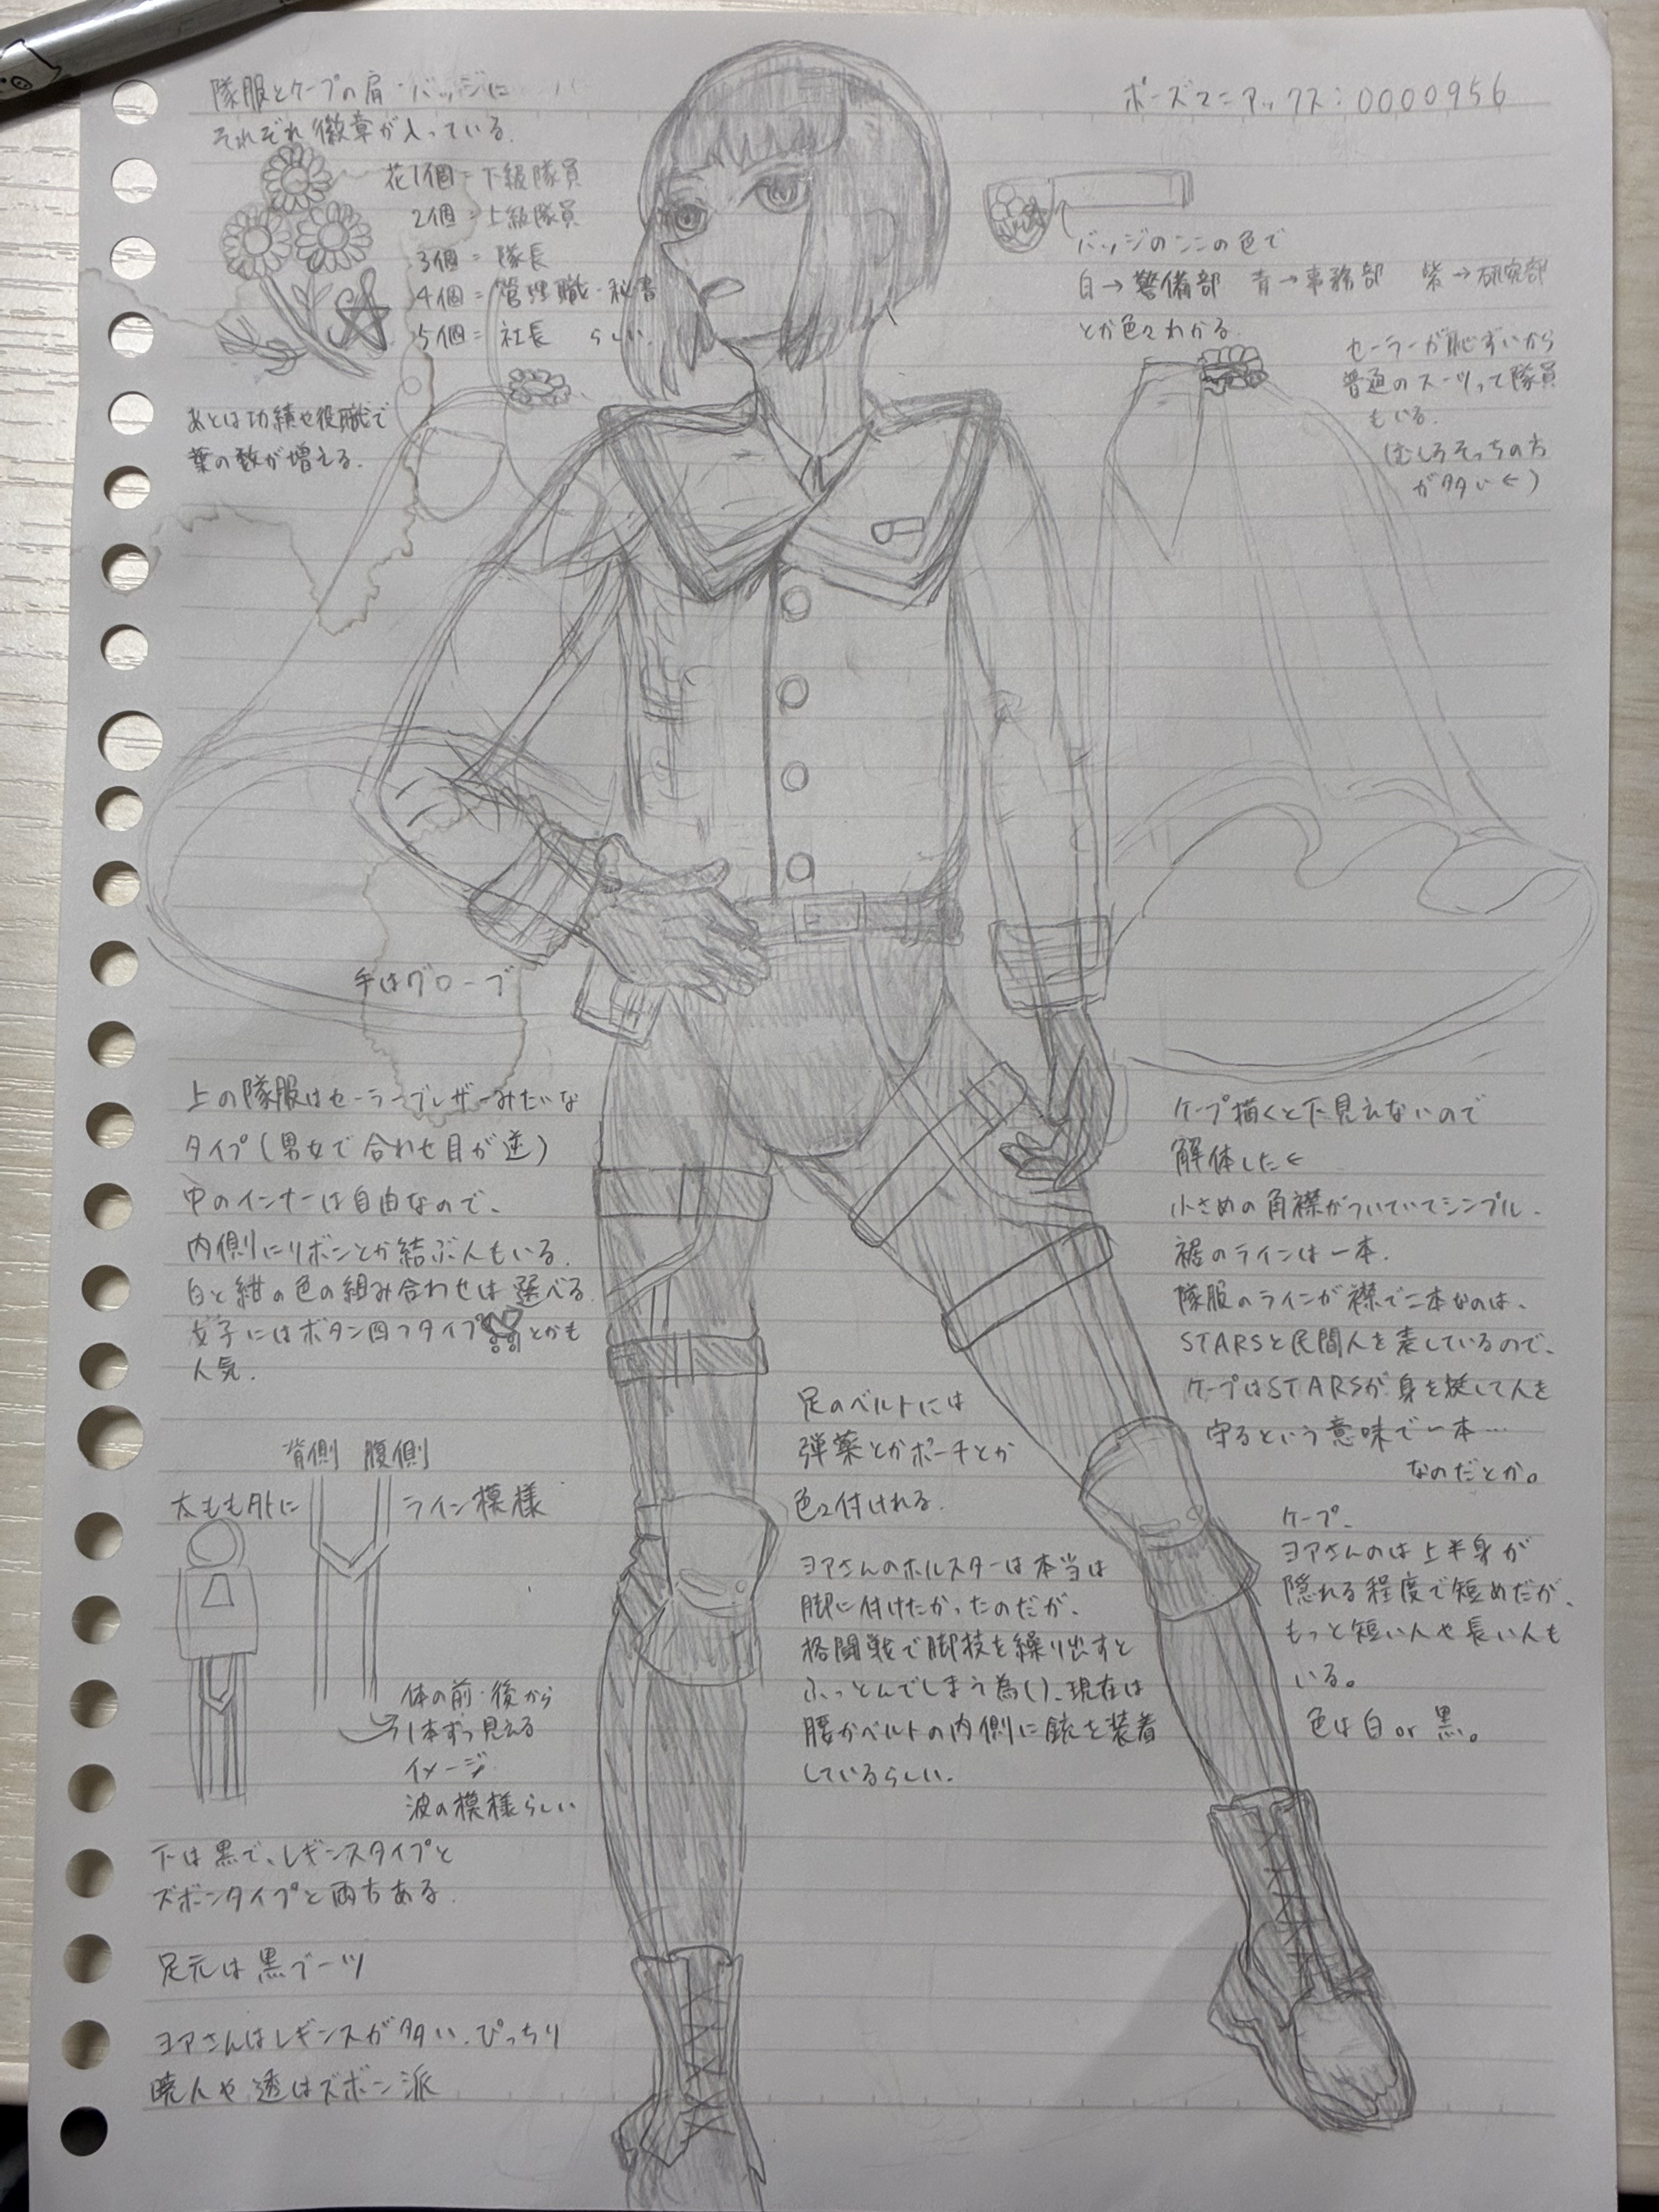 隊服とケープの肩・バッジに
それぞれ徽章が入っている。
花1個=下級隊員
2個=上級隊員
3個=隊長
4個=管理職・秘書
5個=社長 らしい。
あとは功績や役職で
葉の数が増える。
ポーズマニアックス:0000956
バッジのここの色で
白→警備部 青→事務部 紫→研究部
とか色々わかる。
セーラーが恥ずいから
普通のスーツって隊員
もいる。
(むしろそっちの方
が多い←)
手はグローブ
上の隊服はセーラーブレザーみたいな
タイプ(男女で合わせ目が逆)
中のインナーは自由なので、
内側にリボンとか結ぶ人もいる。
白と紺の色の組み合わせは選べる。
女子にはボタン四つタイプとかも
人気。
背側 腹側
太もも外に
ライン模様
体の前・後から
1本ずつ見える
イメージ
波の模様らしい
下は黒で、レギンスタイプと
ズボンタイプと両方ある。
足元は黒ブーツ
ヨアさんはレギンスが多い。ぴっちり
暁人や透はズボン派
足のベルトには
弾薬とかポーチとか
色々付けれる。
ヨアさんのホルスターは本当は
脚に付けたかったのだが、
格闘戦で脚技を繰り出すと
ふっとんでしまう為()、現在は
腰かベルトの内側に銃を装着
しているらしい。
ケープ描くと下見えないので
解体した←
小さめの角襟がついていてシンプル。
裾のラインは一本。
隊服のラインが襟で二本なのは、
STARSと民間人を表しているので、
ケープはSTARSが身を挺して人を
守るという意味で一本…
なのだとか。
ケープ、
ヨアさんのは上半身が
隠れる程度で短めだが、
もっと短い人や長い人も
いる。
色は白or黒。